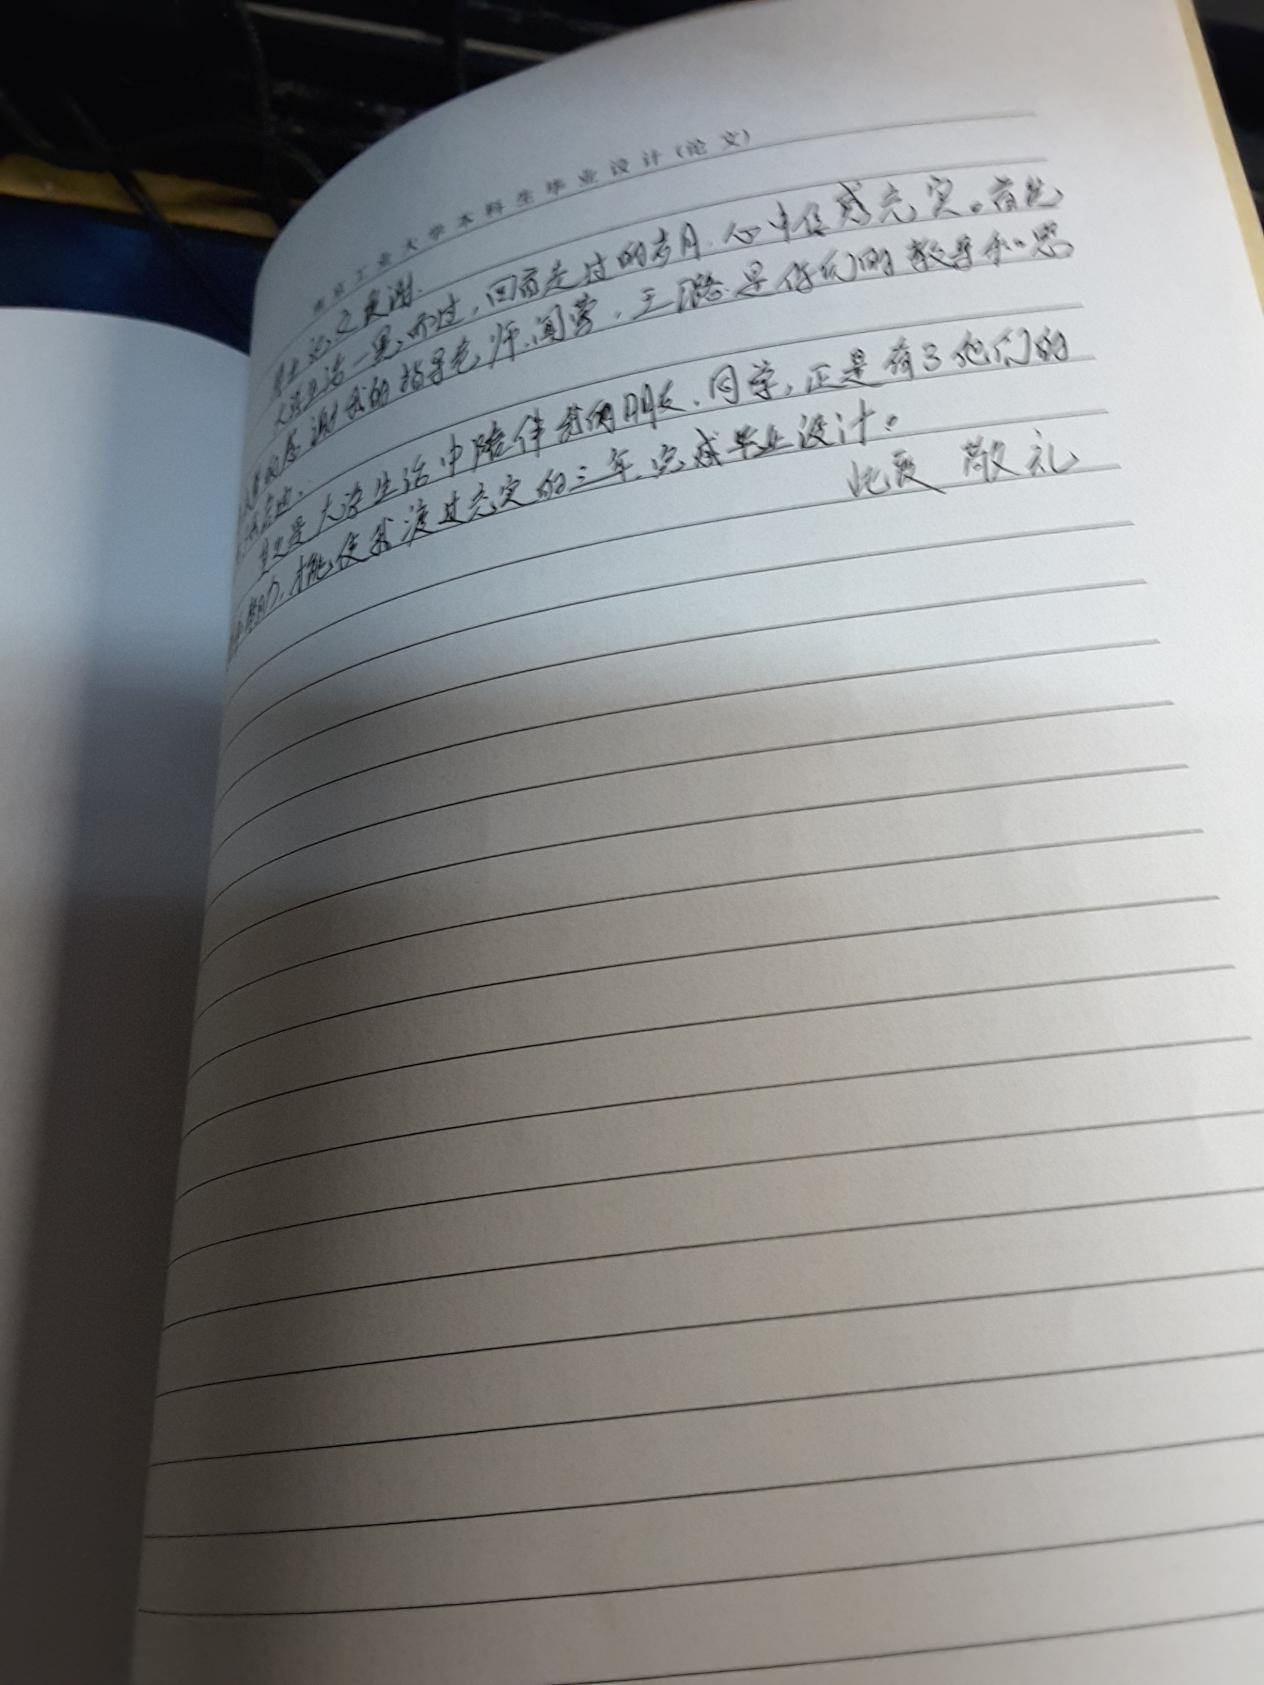 南京工业大学本科生毕业设计(论文)
之致谢.
大学生活一晃而过,回首走过的岁月,心中倍感充实。首先
感谢我的指导老师,闻莺、王璐,是你们的教导和
其次是大学生活中陪伴我的朋友、同学,正是有了他们的
才能使我渡过充实的三年,完成毕业设计。
此致 敬礼